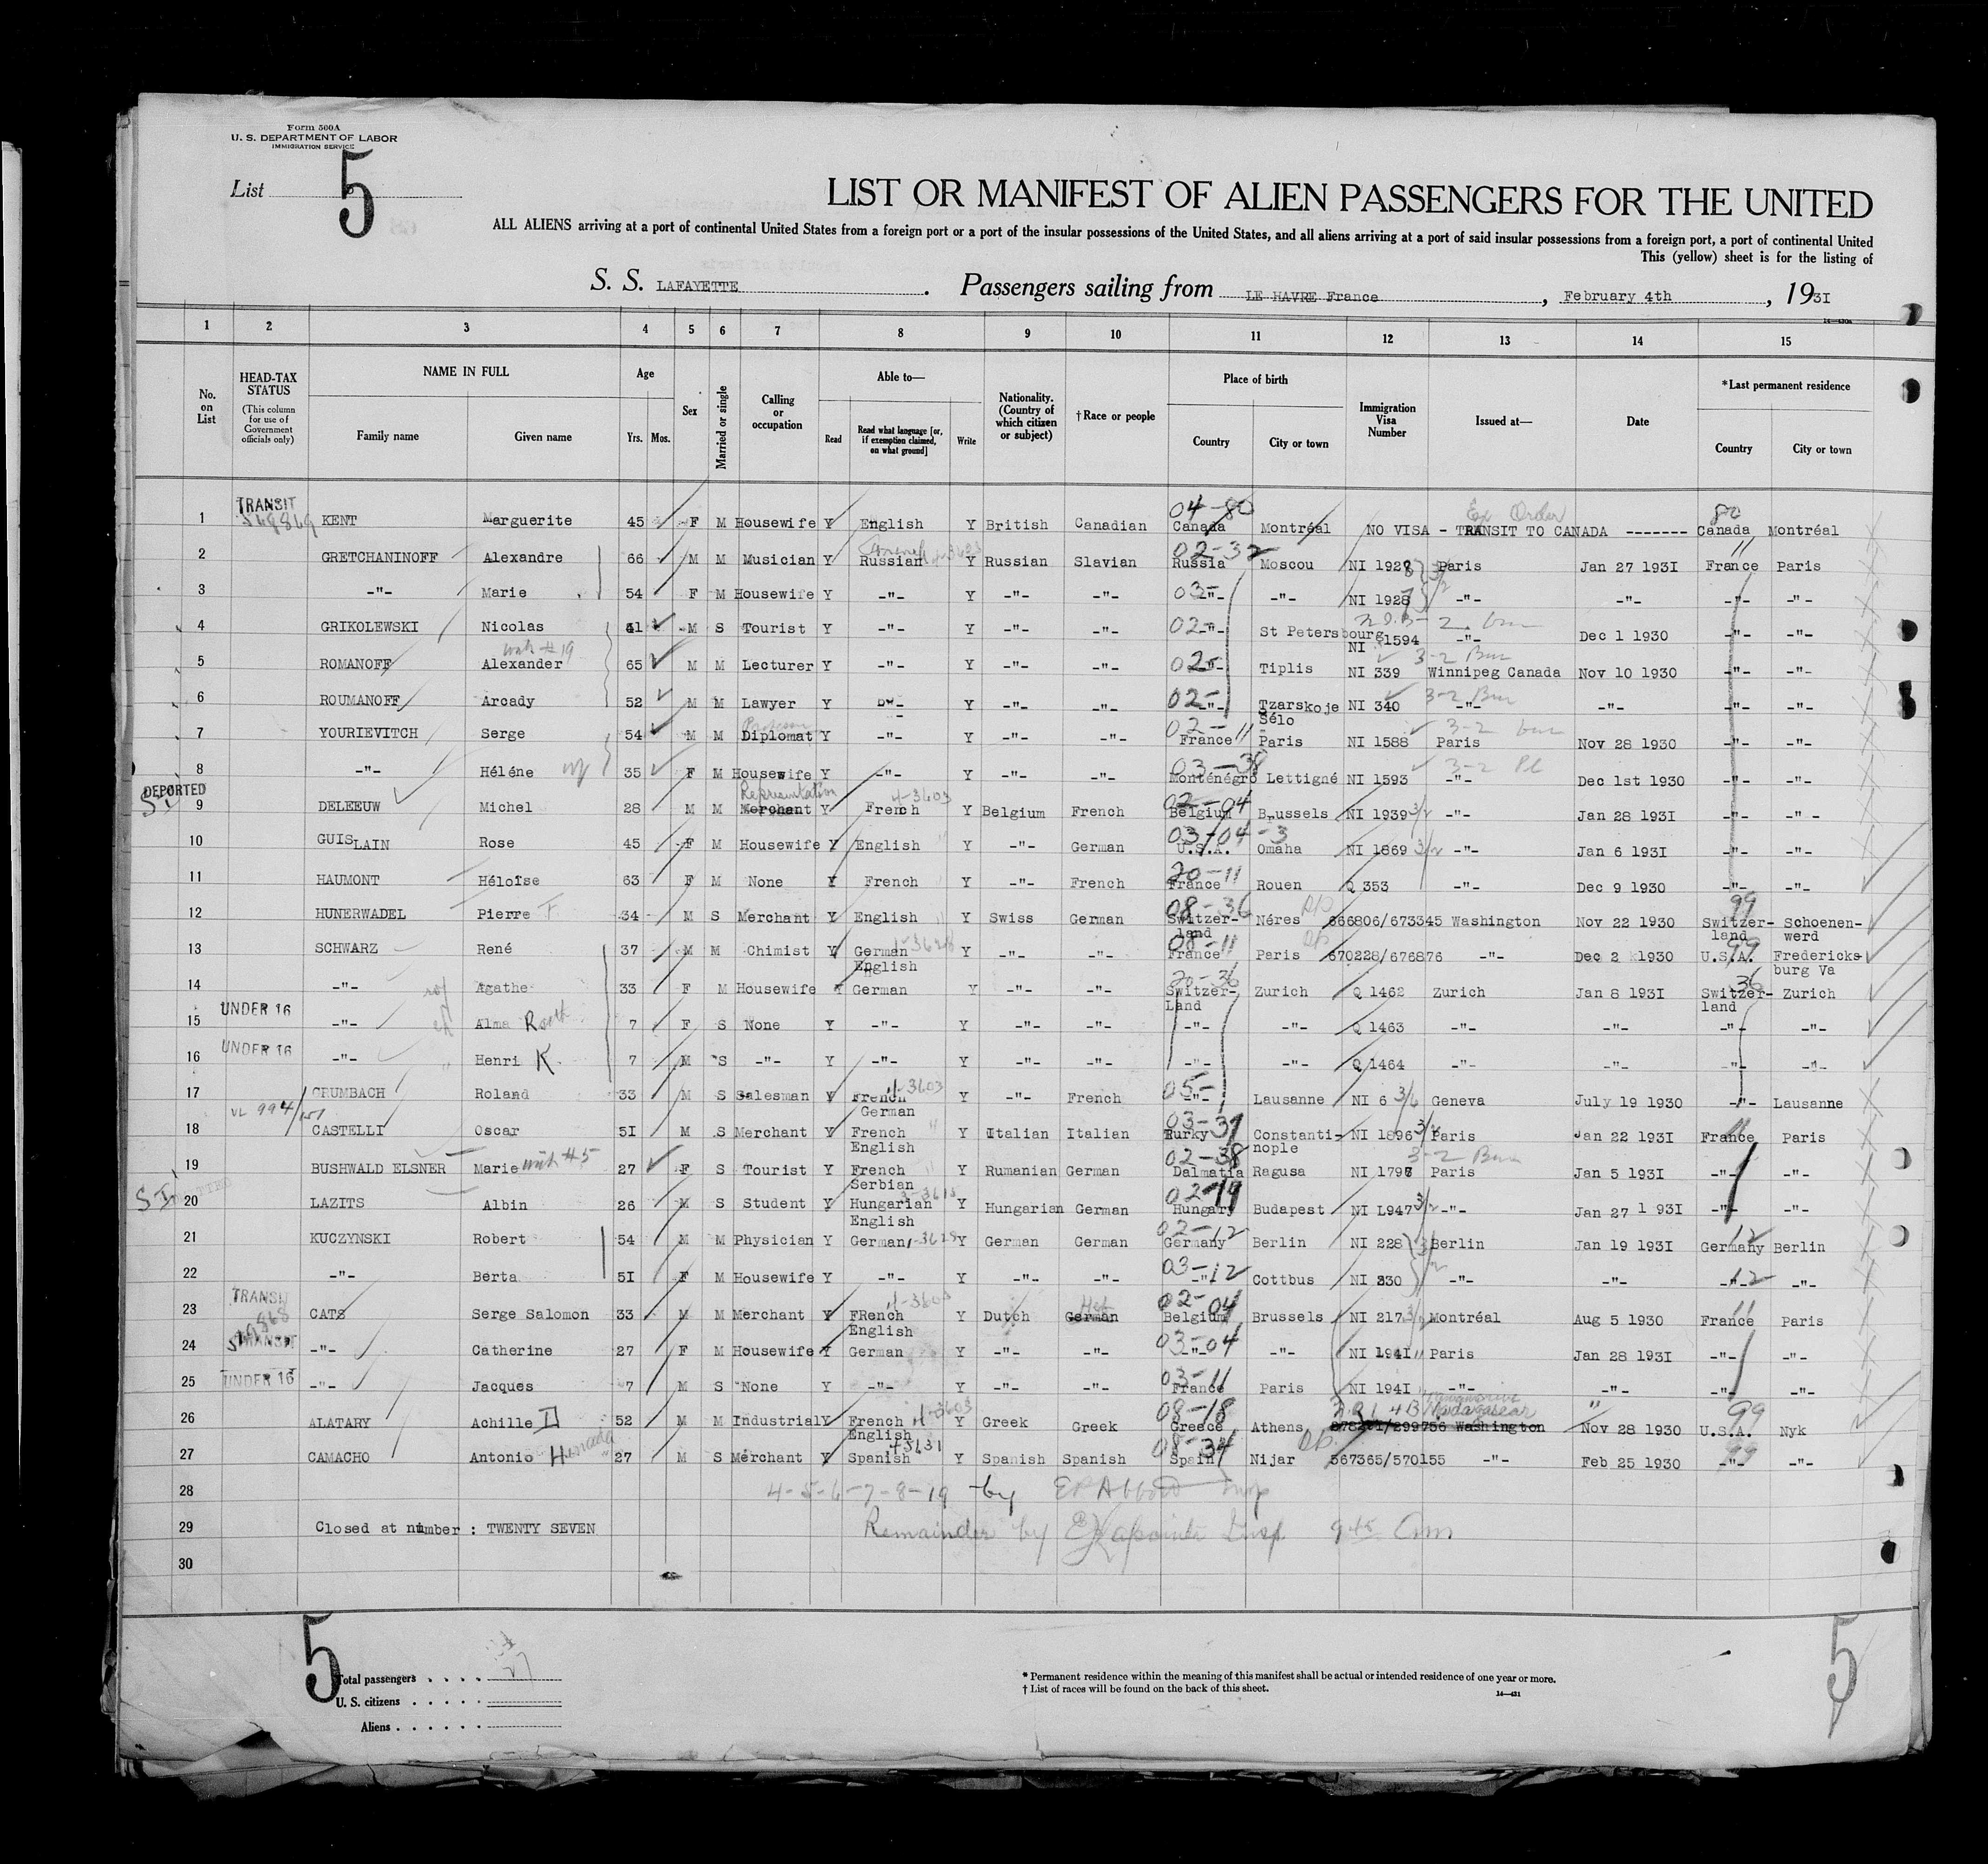 Form 500A
U. S. DEPARTMENT OF LABOR
IMMIGRATION SERVICE
List 5
LIST OR MANIFEST OF ALIEN PASSENGERS FOR THE UNITED
ALL ALIENS arriving at a port of continental United States from a foreign port or a port of the insular possessions of the United States, and all aliens arriving at a port of said insular possessions from a foreign port, a port of continental United
This (yellow) sheet is for the listing of
S. S. LAFAYETTE. Passengers sailing from LE HAVRE France, February 4th, 1931
1 2 3 4 5 6 7 8 9 10 11 12 13 14 15
No. on List
HEAD-TAX STATUS (This column for use of Government officials only)
NAME IN FULL
Family name
Given name
Age
Yrs. Mos.
Sex
Married or single
Calling or occupation
Able to—
Read
Read what language [or, if exemption claimed, on what ground]
Write
Nationality. (Country of which citizen or subject)
† Race or people
Place of birth
Country
City or town
Immigration Visa Number
Issued at—
Date
*Last permanent residence
Country
City or town
1 TRANSIT 549849 KENT Marguerite 45 F M Housewife Y English Y British Canadian 04-80 Canada Montréal NO VISA - TRANSIT TO CANADA ------- Ex Order 80 Canada Montréal
2 GRETCHANINOFF Alexandre 66 M M Musician Y Russian Y Russian Slavian 02-32 Russia Moscou NI 1927 Paris Jan 27 1931 11 France Paris
3 -"- Marie 54 F M Housewife Y -"- Y -"- -"- 03 -"- -"- NI 1928 -"- -"- -"- -"-
4 GRIKOLEWSKI Nicolas 41 M S Tourist Y -"- Y -"- -"- 02 -"- St Petersbourg NI 1594 -"- Dec 1 1930 -"- -"-
5 ROMANOFF Alexander with #19 65 M M Lecturer Y -"- Y -"- -"- 02 -"- Tiplis NI 339 Winnipeg Canada Nov 10 1930 -"- -"-
6 ROUMANOFF Arcady 52 M M Lawyer Y -"- Y -"- -"- 02 -"- Tzarskoje Sélo NI 340 -"- -"- -"- -"-
7 YOURIEVITCH Serge 54 M M Diplomat Y -"- Y -"- -"- 02-11 France Paris NI 1588 Paris Nov 28 1930 -"- -"-
8 -"- Héléne wf 35 F M Housewife Y -"- Y -"- -"- 03-38 Monténégro Lettigné NI 1593 -"- Dec 1st 1930 -"- -"-
DEPORTED SI 9 DELEEUW Michel 28 M M Merchant Y French 4-3603 Y Belgium French 02-04 Belgium Brussels NI 1939 3/2 -"- Jan 28 1931 -"- -"-
10 GUISLAIN Rose 45 F M Housewife Y English Y -"- German 03-04-3 U.S.A. Omaha NI 1869 3/2 -"- Jan 6 1931 -"- -"-
11 HAUMONT Héloïse 63 F M None Y French Y -"- French 20-11 France Rouen Q 353 -"- Dec 9 1930 -"- -"-
12 HUNERWADEL Pierre F 34 M S Merchant Y English Y Swiss German 08-36 Switzerland Néres 666806/673345 Washington Nov 22 1930 99 Switzerland Schoenenwerd
13 SCHWARZ René 37 M M Chimist Y German English Y -"- -"- 08-11 France Paris 670228/676876 -"- Dec 2 1930 99 U.S.A. Fredericksburg Va
14 -"- Agathe 33 F M Housewife Y German Y -"- -"- 20-36 Switzerland Zurich Q 1462 Zurich Jan 8 1931 36 Switzerland Zurich
15 UNDER 16 -"- Alma Ruth 7 F S None Y -"- Y -"- -"- -"- -"- Q 1463 -"- -"- -"- -"-
16 UNDER 16 -"- Henri K. 7 M S -"- Y -"- Y -"- -"- -"- -"- Q 1464 -"- -"- -"- -"-
17 GRUMBACH Roland 33 M S Salesman Y French German 4-3603 Y -"- French 05 -"- Lausanne NI 6 3/6 Geneva July 19 1930 -"- Lausanne
18 CASTELLI Oscar 51 M S Merchant Y French English Y Italian Italian 03-37 Turky Constantinople NI 1896 3/2 Paris Jan 22 1931 11 France Paris
19 BUSHWALD ELSNER Marie with #5 27 F S Tourist Y French Serbian Y Rumanian German 02-38 Dalmatia Ragusa NI 1798 Paris Jan 5 1931 -"- -"-
SI 20 LAZITS Albin 26 M S Student Y Hungarian English Y Hungarian German 02-19 Hungary Budapest NI 1947 3/2 -"- Jan 27 1931 -"- -"-
21 KUCZYNSKI Robert 54 M M Physician Y German Y German German 02-12 Germany Berlin NI 228 Berlin Jan 19 1931 12 Germany Berlin
22 -"- Berta 51 F M Housewife Y -"- Y -"- -"- 03-12 -"- Cottbus NI 230 -"- -"- 12 -"- -"-
23 TRANSIT CATS Serge Salomon 33 M M Merchant Y FRench English 4-3603 Y Dutch German 02-04 Belgium Brussels NI 217 3/2 Montréal Aug 5 1930 11 France Paris
24 TRANSIT -"- Catherine 27 F M Housewife Y German Y -"- -"- 03-04 -"- -"- NI 1941 Paris Jan 28 1931 -"- -"-
25 UNDER 16 -"- Jacques 7 M S None Y -"- Y -"- -"- 03-11 France Paris NI 1941 -"- -"- -"- -"-
26 ALATARY Achille D 52 M M Industrial Y French English 4-3603 Y Greek Greek 08-18 Greece Athens Washington Madagascar Nov 28 1930 99 U.S.A. Nyk
27 CAMACHO Antonio 27 M S Merchant Y Spanish Y Spanish Spanish 08-34 Spain Nijar 567365/570155 -"- Feb 25 1930 99 -"- -"-
28 4-5-6-7-8-19 by Insp
29 Closed at number : TWENTY SEVEN Remainder by Insp 945 am
30
5
Total passengers . . . . 27
U. S. citizens . . . . .
Aliens . . . . . .
* Permanent residence within the meaning of this manifest shall be actual or intended residence of one year or more.
† List of races will be found on the back of this sheet.
14—431
5